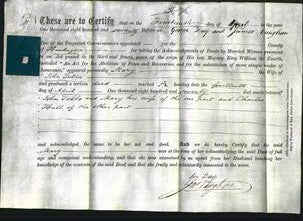 These are to Certify That on the Fourteenth day of April in the Year
One thousand eight hundred and seventy before us George Day and James Vaughan
two of the Perpetual Commissioners appointed for the
of for taking the Acknowledgments of Deeds by Married Women pursuant
to an Act passed in the third and fourth years of the reign of his late Majesty King William the Fourth,
intituled "An Act for the Abolition of Fines and Recoveries, and for the substitution of more simple modes of
Assurance," appeared personally Mary the wife of
John Tebbs
and produced a certain deed marked bearing date the fourteenth
day of April One thousand eight hundred and seventy and made between
John Tebbs and Mary his wife of the one part and Charles
Hull of the other part
and acknowledged the same to be her act and deed. And we do hereby Certify that the said
Mary was at the time of her acknowledging the said Deed of full
age and competent understanding, and that she was examined by us apart from her Husband touching her
knowledge of the contents of the said Deed and that she freely and voluntarily consented to the same.
Geo Day
Jas Vaughan